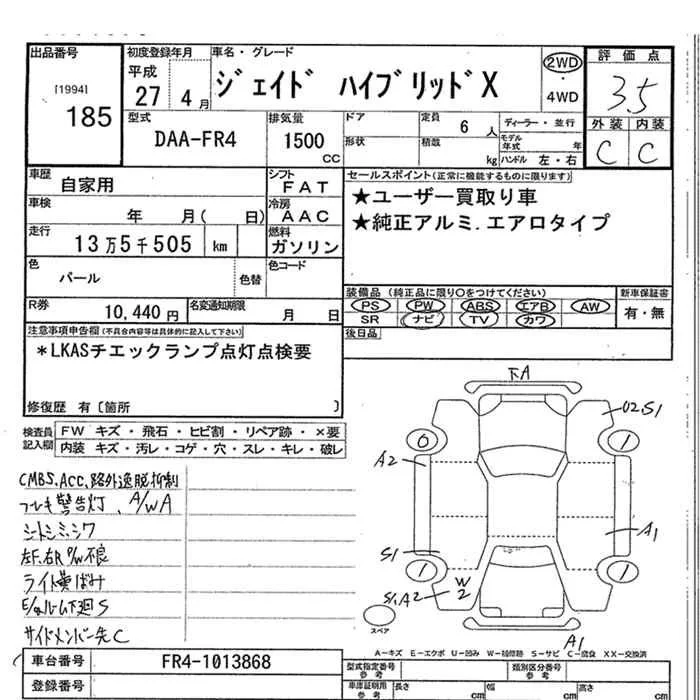 出品番号
[1994]
185
初度登録年月
平成
27 4月
車名・グレード
ジェイド ハイブリッドX
2WD
4WD
評価点
3.5
外装 内装
C C
型式
DAA-FR4
排気量
1500
CC
ドア
形状
定員
6 人
積載
kg
ディーラー・並行
モデル年式 年
ハンドル 左・右
車歴
自家用
シフト
FAT
車検
年 月( 日)
冷房
AAC
走行
13万5千505 km
燃料
ガソリン
色
パール
色替
色コード
R券
10,440円
名変通知期限
月 日
セールスポイント(正常に機能するものに限ります)
★ユーザー買取り車
★純正アルミ.エアロタイプ
装備品(純正品に限り○をつけてください)
PS PW ABS エアB AW
SR ナビ TV カワ
新車保証書
有・無
後日品
注意事項申告欄(不具合内容等は具体的に記入して下さい)
*LKASチエックランプ点灯点検要
修復歴 有〔箇所 〕
検査員記入欄
FW キズ・飛石・ヒビ割・リペア跡・×要
内装 キズ・汚レ・コゲ・穴・スレ・キレ・破レ
CMBS、ACC、路外逸脱抑制
ブレーキ警告灯、A/W A
シートシミ、シワ
左F、右R P/W不良
ライト黄ばみ
E/gルーム下廻S
サイドメンバー先C
下A
02.S1
0
1
A2
A1
S1
1
1
S1,A2
W2
A1
スペア
A-キズ E-エクボ U-凹み W-補修跡 S-サビ C-腐食 XX-交換済
車台番号
FR4-1013868
登録番号
型式指定番号
参考
類別区分番号
参考
車庫証明用
参考
長さ
cm
幅
cm
高さ
cm